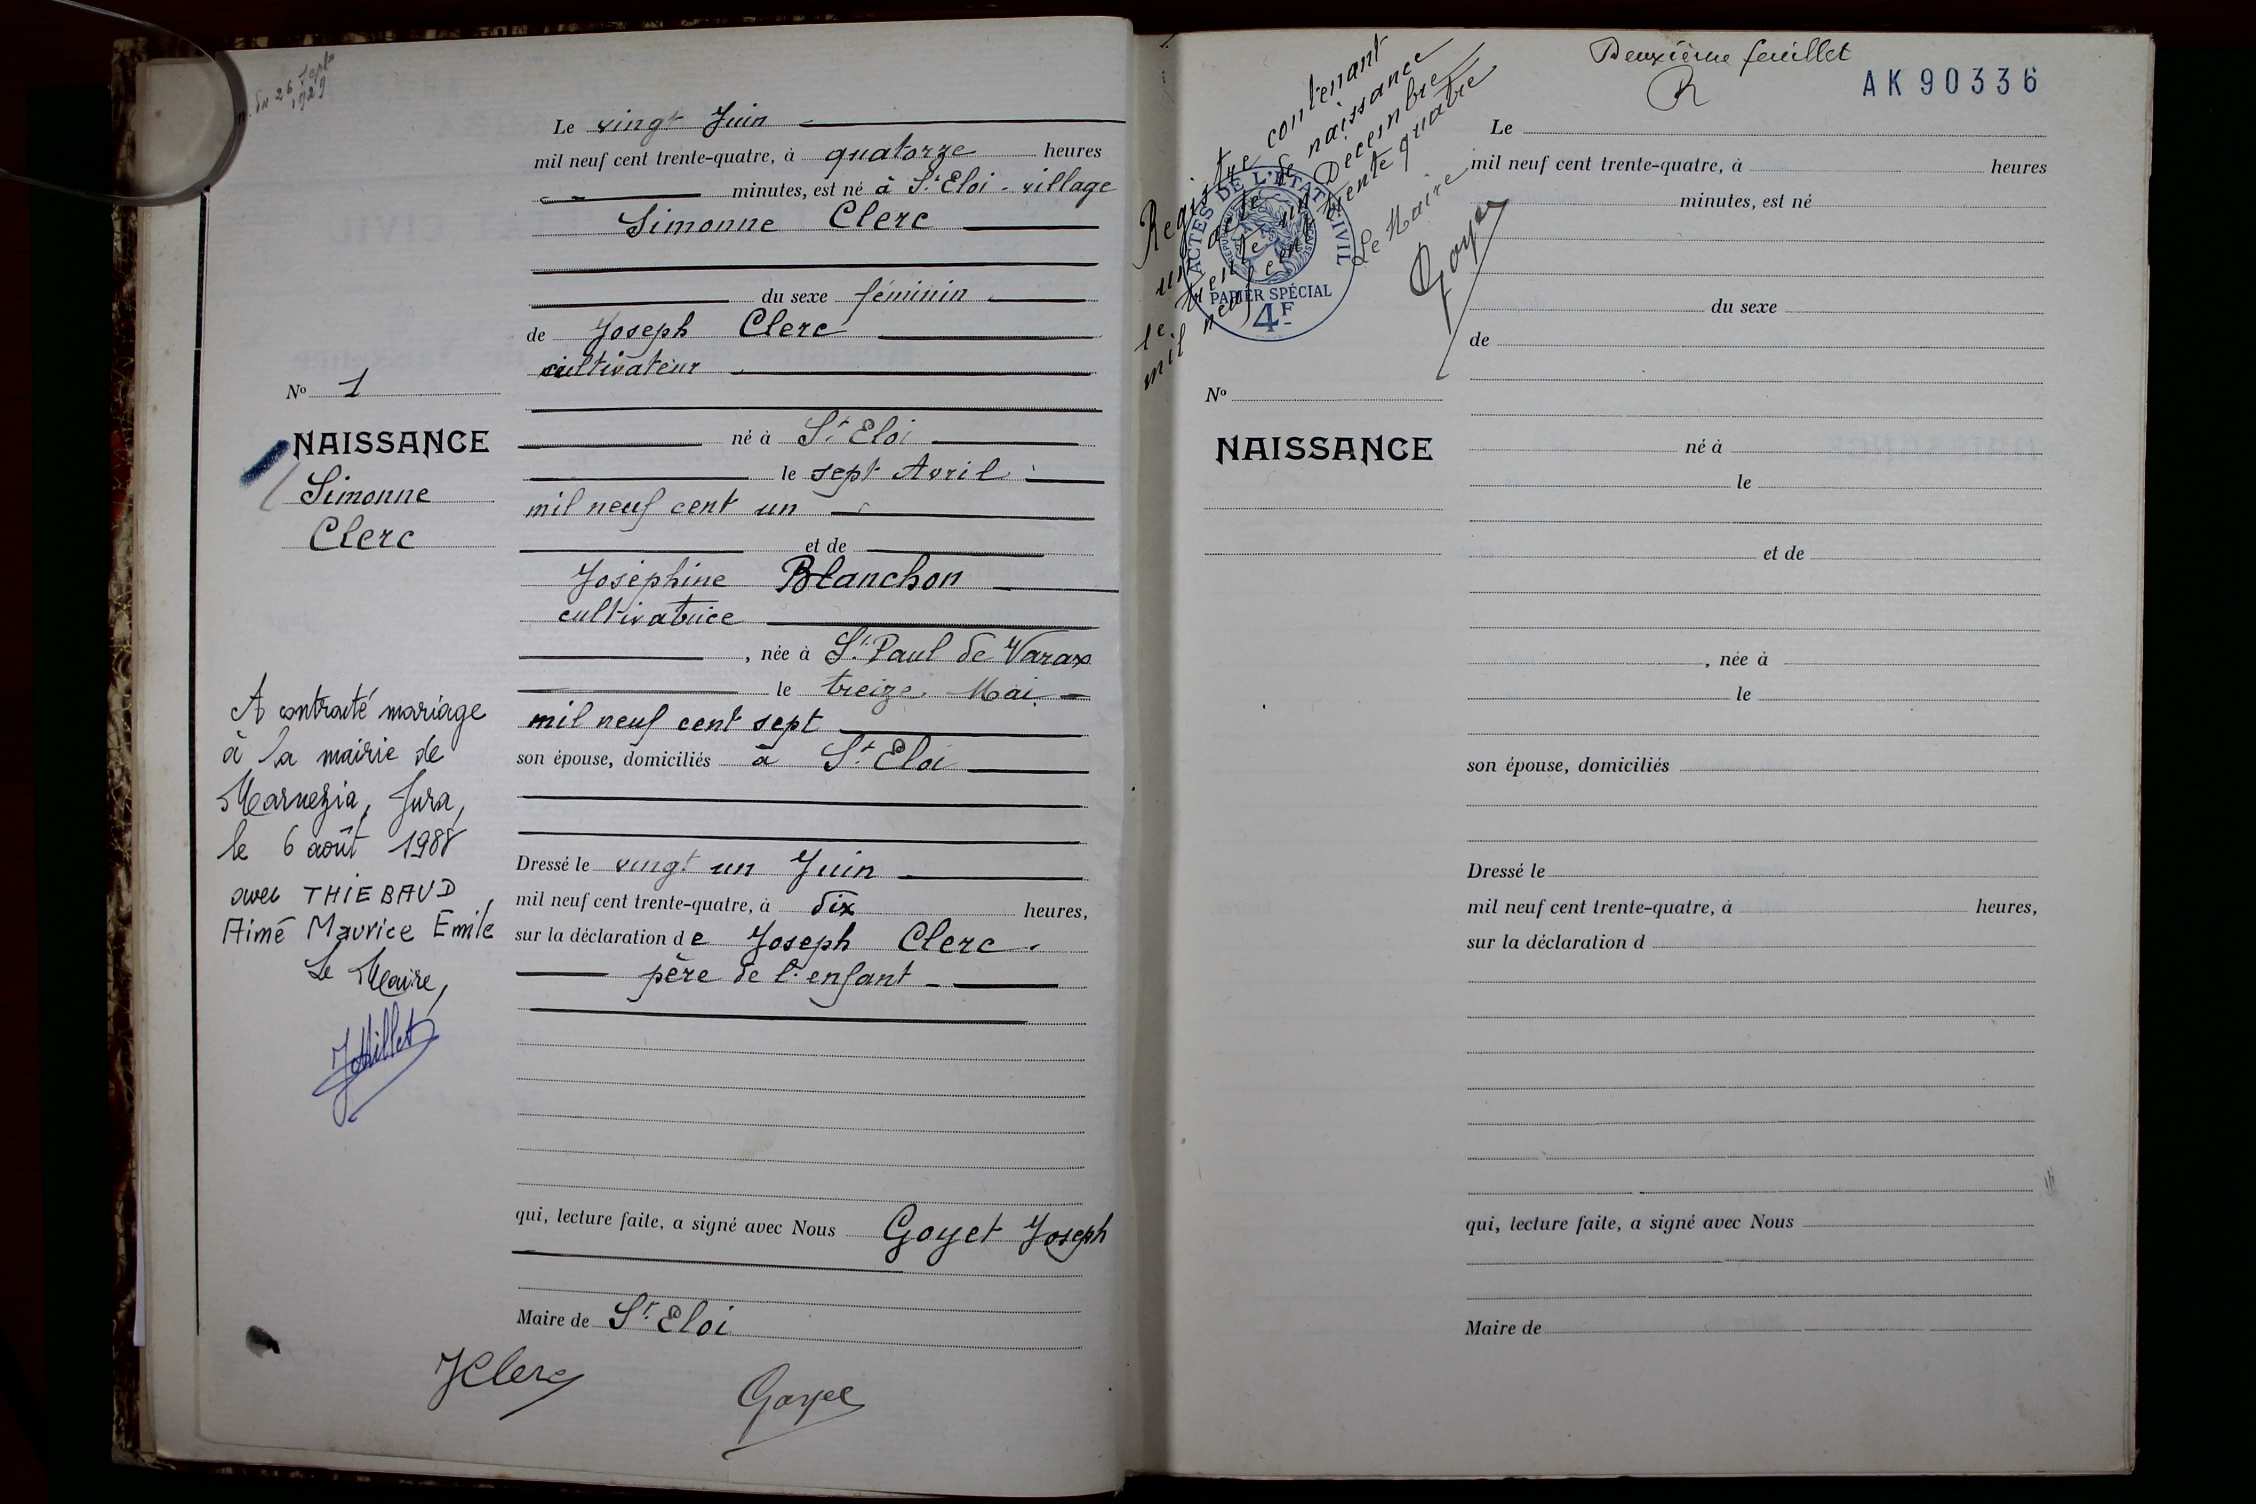 n. du 26 Septe
1929
Le vingt Juin
mil neuf cent trente-quatre, à quatorze heures
minutes, est né à St. Eloi - village
Simonne Clerc
du sexe féminin
de Joseph Clerc
cultivateur
né à St. Eloi
le sept Avril
mil neuf cent un
et de
Joséphine Blanchon
cultivatrice
, née à St. Paul de Varax
le treize Mai
mil neuf cent sept
son épouse, domiciliés à St. Eloi
Dressé le vingt un Juin
mil neuf cent trente-quatre, à dix heures,
sur la déclaration de Joseph Clerc
père de l'enfant
qui, lecture faite, a signé avec Nous Goyet Joseph
Maire de St. Eloi
JClerc
Goyet
No 1
NAISSANCE
Simonne
Clerc
A contracté mariage
à la mairie de
Marnezia, Jura,
le 6 août 1988
avec THIEBAUD,
Aimé Maurice Emile
Le Maire,
Deuxième feuillet
R
AK 90336
Registre contenant
un acte de naissance
le trente un Décembre
mil neuf cent trente quatre
Le Maire
Goyet
ACTES DE L'ETAT CIVIL
PAPIER SPÉCIAL
4F
Le
mil neuf cent trente-quatre, à heures
minutes, est né
du sexe
de
No
NAISSANCE
né à
le
et de
, née à
le
son épouse, domiciliés
Dressé le
mil neuf cent trente-quatre, à heures,
sur la déclaration d
qui, lecture faite, a signé avec Nous
Maire de